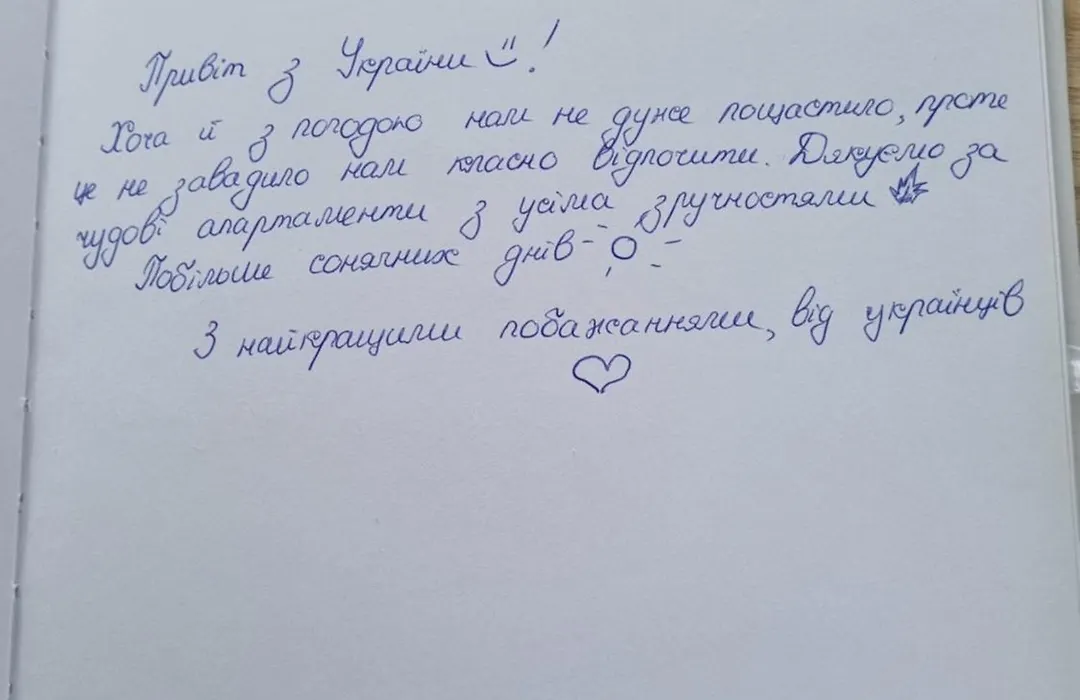 Привіт з України !
Хоча й з погодою нам не дуже пощастило, проте
це не завадило нам класно відпочити. Дякуємо за
чудові апартаменти з усіма зручностями
Побільше сонячних днів
З найкращими побажаннями, від українців